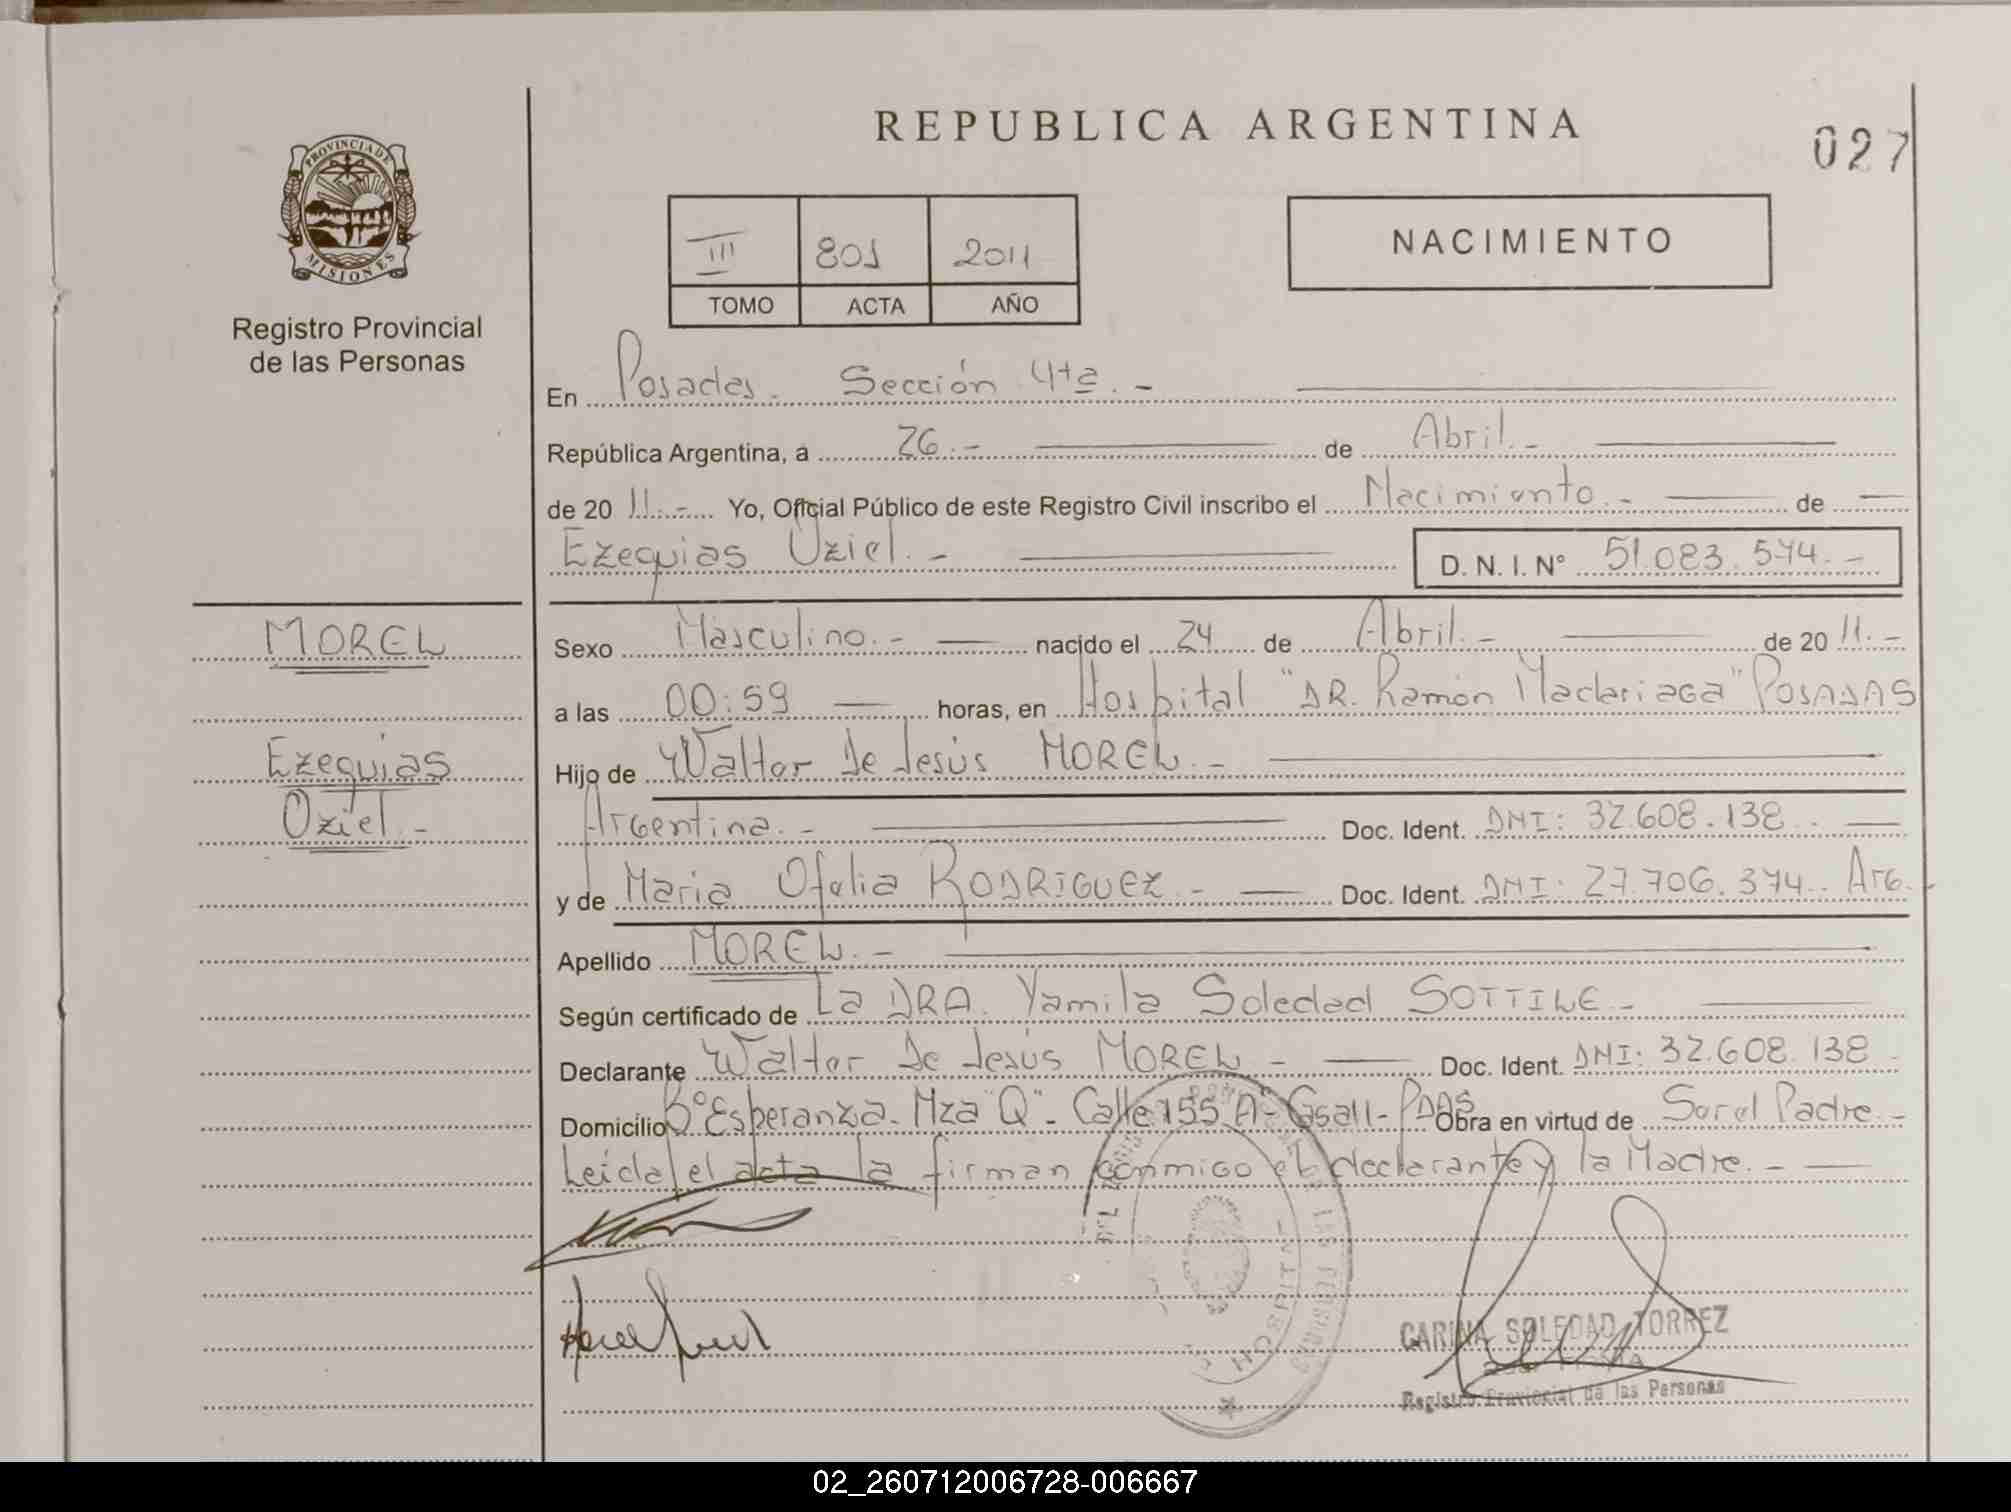 REPUBLICA ARGENTINA
027
PROVINCIA DE
MISIONES
Registro Provincial
de las Personas
III 801 2011
TOMO ACTA AÑO
NACIMIENTO
En Posadas. Sección 4ta.-
República Argentina, a 26.- de Abril.-
de 2011.- Yo, Oficial Público de este Registro Civil inscribo el Nacimiento.- de
Ezequias Uziel.- D. N. I. N° 51.083.574.-
MOREL
Sexo Masculino.- nacido el 24 de Abril.- de 2011.-
a las 00:59 horas, en Hospital "DR. Ramón Madariaga" POSADAS
Ezequias
Hijo de Walter De Jesús MOREL.-
Uziel.-
Argentina.- Doc. Ident. DNI: 32.608.138.
y de Maria Ofelia RODRIGUEZ.- Doc. Ident. DNI: 27.706.374.. Arg.-
Apellido MOREL.-
Según certificado de La DRA. Yamila Soledad SOTTILE.-
Declarante Walter De Jesús MOREL - Doc. Ident. DNI: 32.608.138
Domicilio B° Esperanza- Mza "Q"- Calle 155 "A"- Casa11- PDAS Obra en virtud de Ser el Padre.-
Leida el acta la firman conmigo el declarante y la Madre.-
HOSPITAL
DE LAS PERSONAS
CARINA SOLEDAD TORREZ
Registro Provincial de las Personas
02_260712006728-006667